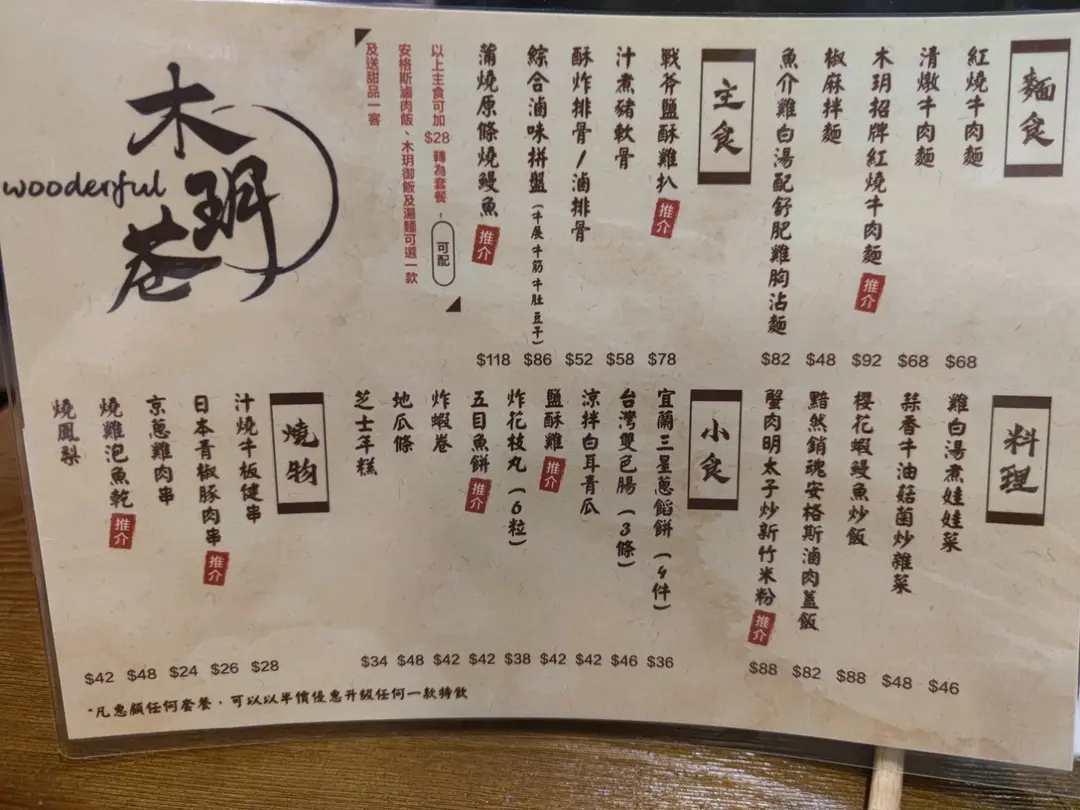 麵食
紅燒牛肉麵 $68
清燉牛肉麵 $68
木玥招牌紅燒牛肉麵 推介 $92
椒麻拌麵 $48
魚介雞白湯配舒肥雞胸沾麵 $82
主食
戰斧鹽酥雞扒 推介 $78
汁煮豬軟骨 $58
酥炸排骨/滷排骨 $52
綜合滷味拼盤(牛展牛筋牛肚豆干) $86
蒲燒原條燒鰻魚 推介 $118
以上主食可加$28轉為套餐,可配
安格斯滷肉飯、木玥御飯及湯麵可選一款
及送甜品一客
木玥巷
wooderful
料理
雞白湯煮娃娃菜 $46
蒜香牛油菇菌炒雜菜 $48
櫻花蝦鰻魚炒飯 $88
黯然銷魂安格斯滷肉蓋飯 $82
蟹肉明太子炒新竹米粉 推介 $88
小食
宜蘭三星蔥餡餅(4件) $36
台灣雙色腸(3條) $46
涼拌白耳青瓜 $42
鹽酥雞 推介 $42
炸花枝丸(6粒) $38
五目魚餅 推介 $42
炸蝦卷 $42
地瓜條 $48
芝士年糕 $34
燒物
汁燒牛板健串 $28
日本青椒豚肉串 推介 $26
京蔥雞肉串 $24
燒雞泡魚乾 推介 $48
燒鳳梨 $42
*凡惠顧任何套餐,可以以半價優惠升級任何一款特飲